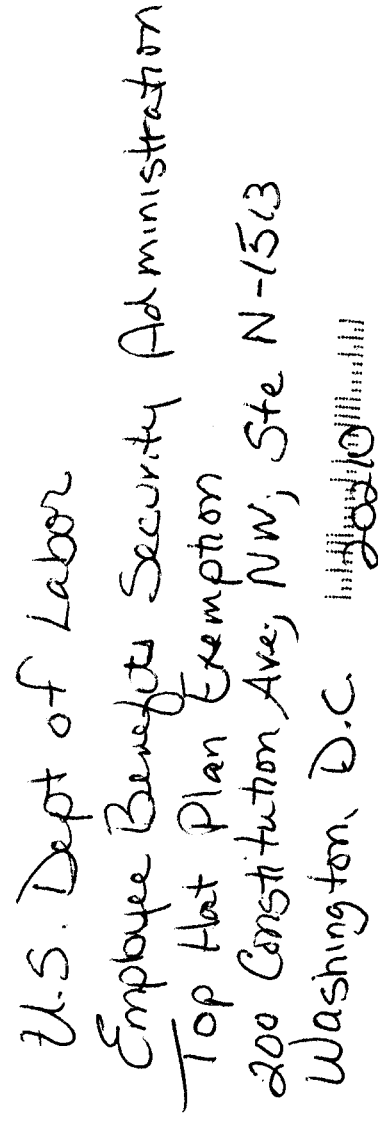 U.S. Dept of Labor
Employee Benefits Security Administration
Top Hat Plan Exemption
200 Constitution Ave, NW, Ste N-1513
Washington, D.C. 20210